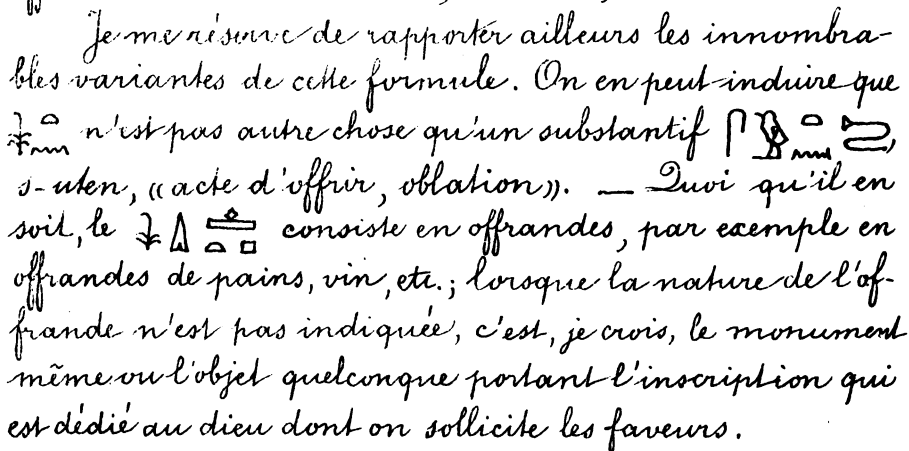 Je me réserve de rapporter ailleurs les innombra-
bles variantes de cette formule. On en peut induire que
𓇓𓏏𓈖 n'est pas autre chose qu'un substantif
s-uten, «acte d'offrir, oblation». — Quoi qu'il en
soit, le 𓇓𓏙𓊵𓏏𓊪 consiste en offrandes, par exemple en
offrandes de pains, vin, etc.; lorsque la nature de l'of-
frande n'est pas indiquée, c'est, je crois, le monument
même ou l'objet quelconque portant l'inscription qui
est dédié au dieu dont on sollicite les faveurs.